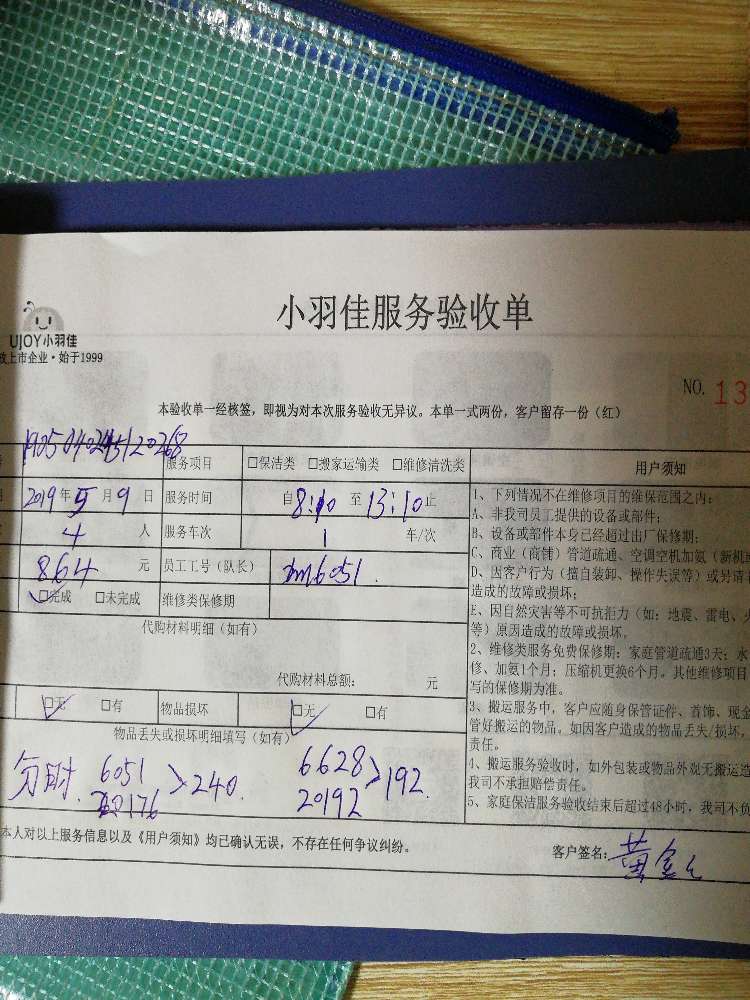 小羽佳服务验收单
UJOY小羽佳
上市企业·始于1999
NO. 13
本验收单一经核签，即视为对本次服务验收无异议。本单一式两份，客户留存一份（红）
服务项目 □保洁类 □搬家运输类 □维修清洗类 用户须知
2019年5月9日 服务时间 自8:10至13:10止
4 人 服务车次 1 车/次
864 元 员工工号（队长） xm6051
□完成 □未完成 维修类保修期
代购材料明细（如有）
代购材料总额： 元
□无 □有 物品损坏 □无 □有
物品丢失或损坏明细填写（如有）
分时. 6051 >240. 6628 >192.
20176 20192
1、下列情况不在维修项目的维保范围之内：
A、非我司员工提供的设备或部件；
B、设备或部件本身已经超过出厂保修期；
C、商业（商铺）管道疏通、空调空机加氨（新机或
D、因客户行为（擅自装卸、操作失误等）或另请
造成的故障或损坏；
E、因自然灾害等不可抗拒力（如：地震、雷电、火
等）原因造成的故障或损坏。
2、维修类服务免费保修期：家庭管道疏通3天；水
修、加氨1个月；压缩机更换6个月。其他维修项目
写的保修期为准。
3、搬运服务中，客户应随身保管证件、首饰、现金
管好搬运的物品。如因客户造成的物品丢失/损坏，
责任。
4、搬运服务验收时，如外包装或物品外观无搬运造
我司不承担赔偿责任。
5、家庭保洁服务验收结束后超过48小时，我司不负
本人对以上服务信息以及《用户须知》均已确认无误，不存在任何争议纠纷。
客户签名：黄